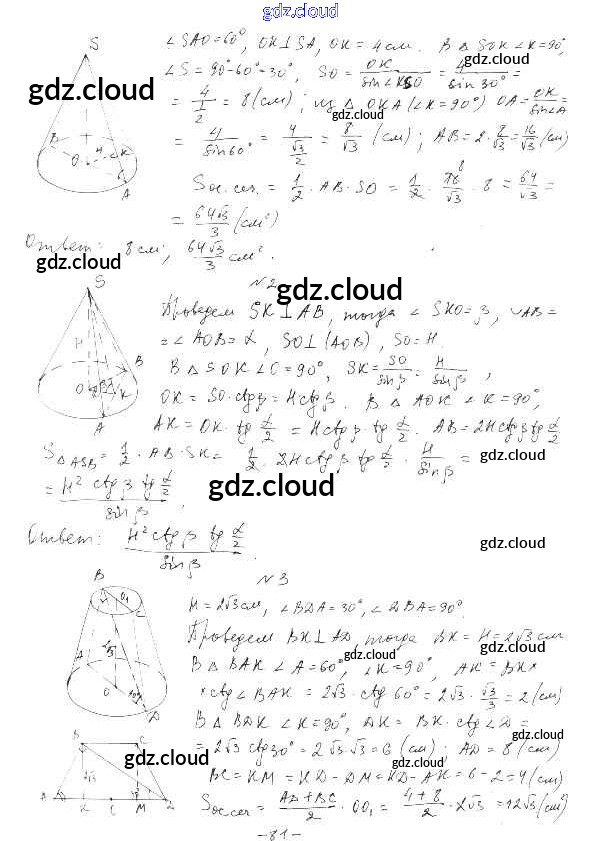 gdz.cloud
∠SAO=60°, OK⊥SA, OK = 4см. В △ SOK ∠K=90°,
∠S = 90°-60°=30°, SO = OK/sin∠KSO = 4/sin30° =
= 4/(1/2) = 8 (см); из △ OKA (∠K=90°) OA = OK/sin∠A =
= 4/sin60° = 4/(√3/2) = 8/√3 (см); AB = 2·8/√3 = 16/√3 (см)
Sос.сеч. = 1/2 · AB · SO = 1/2 · 16/√3 · 8 = 64/√3 =
= 64√3/3 (см²)
Ответ: 8 см; 64√3/3 см².
№2
Проведем SK⊥AB, тогда ∠SKO=β, ∪AB=
= ∠AOB = α, SO⊥(AOB), SO = H.
В △ SOK ∠O = 90°, SK = SO/sinβ = H/sinβ,
OK = SO·ctgβ = Hctgβ. В △ AOK ∠K = 90°,
AK = OK · tg α/2 = Hctgβ · tg α/2. AB = 2Hctgβ tg α/2
S△ASB = 1/2 · AB · SK = 1/2 · 2Hctgβ · tg α/2 · H/sinβ =
= H² ctgβ tg α/2 / sinβ
Ответ: H² ctgβ tg α/2 / sinβ.
№3
H = 2√3 см, ∠BDA = 30°, ∠DBA = 90°.
Проведем BK⊥AD, тогда BK = H = 2√3 см
В △ BAK ∠A = 60°, ∠K = 90°, AK = BK×
× ctg∠BAK = 2√3 · ctg60° = 2√3 · √3/3 = 2 (см)
В △ BDK ∠K = 90°, DK = BK · ctg∠D =
= 2√3 ctg30° = 2√3·√3 = 6 (см); AD = 8 (см)
BC = KM = KD - DM = KD - AK = 6 - 2 = 4 (см)
Sос.сеч = (AD+BC)/2 · OO₁ = (4+8)/2 · 2√3 = 12√3 (см²)
-81-